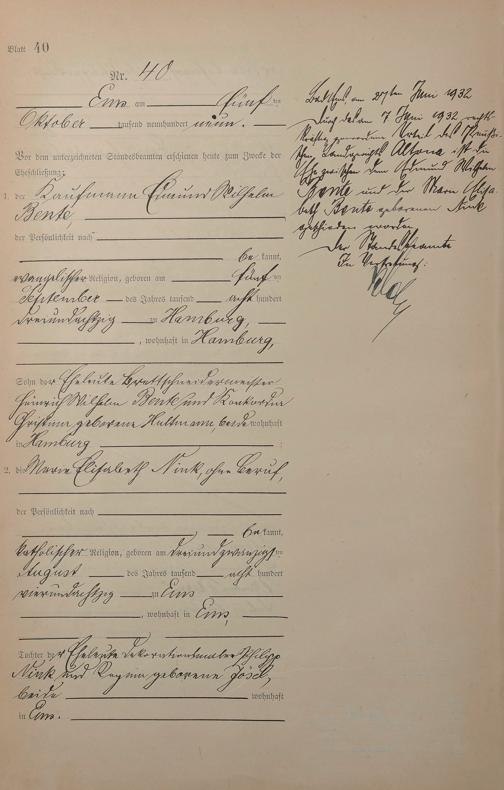 Blatt 40
Nr. 40
Ems am fünften
Oktober tausend neunhundert neun.
Vor dem unterzeichneten Standesbeamten erschienen heute zum Zwecke der
Eheschließung:
1. der Kaufmann Edmund Wilhelm
Bente,
der Persönlichkeit nach
be kannt,
evangelischer Religion, geboren am fünften
September des Jahres tausend acht hundert
dreiundachtzig zu Hamburg,
, wohnhaft in Hamburg,
Sohn der Eheleute Brettschneidermeister
Heinrich Wilhelm Bente und
Christina geborene beide wohnhaft
in Hamburg
2. die Marie Elisabeth Nink, ohne Beruf,
der Persönlichkeit nach
be kannt,
katholischer Religion, geboren am dreiundzwanzigsten
August des Jahres tausend acht hundert
vierundachtzig zu Ems
, wohnhaft in Ems,
Tochter der Eheleute Dekorationsmaler Philipp
Nink und Regina geborene
beide wohnhaft
in Ems.
Bad Ems, am 27ten Juni 1932
Durch das am 7 Juni 1932 rechts-
kräftig gewordene Urteil des Preußi-
schen Landgerichts Altona ist die
Ehe zwischen dem Edmund Wilhelm
Bente und der Marie Elisa-
beth Bente geborenen Nink
geschieden worden.
Der Standesbeamte
In Vertretung: